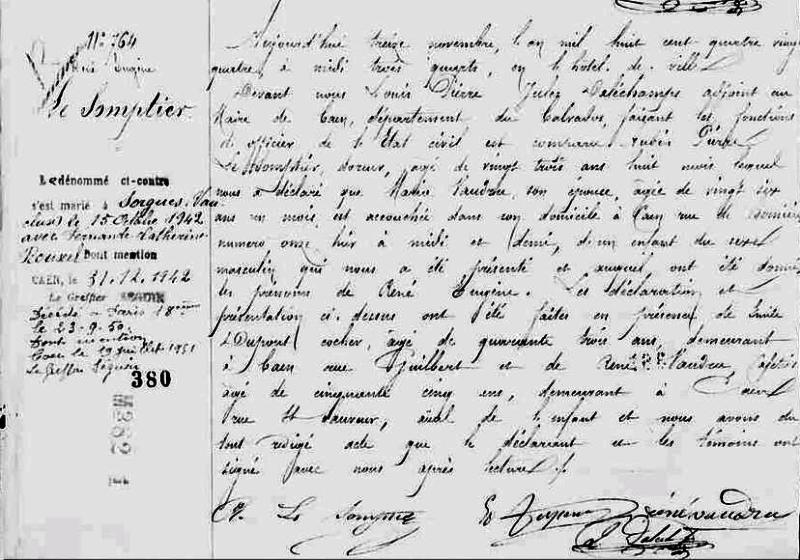 N° 764
René Eugène
Le Somptier
Le dénommé ci-contre
s'est marié à Sorgues Vau
cluse le 15 Octobre 1942
avec Fernande Catherine
Dont mention
CAEN, le 31.12.1942
Le Greffier
Décédé à Paris 18ème
le 23-9-50.
Dont mention
Caen le 19 juillet 1951
Le Greffier
380
Aujourd'hui treize novembre, l'an mil huit cent quatre vingt
quatre, à midi trois quarts, en l'hôtel de ville
Devant nous Louis Pierre Jules adjoint au
Maire de Caen, département du Calvados, faisant les fonctions
d'officier de l'Etat civil est comparu Pierre
Le Somptier, doreur, âgé de vingt trois ans huit mois lequel
nous a déclaré que Marie Vaudru, son épouse, âgée de vingt six
ans un mois, est accouchée dans son domicile à Caen rue de
numéro onze hier à midi et demi, d'un enfant du sexe
masculin qui nous a été présenté et auquel ont été donnés
les prénoms de René Eugène. Les déclaration et
présentation ci-dessus ont été faites en présence de
Dupont cocher, âgé de quarante trois ans, demeurant
à Caen rue Guilbert et de René Vaudru,
âgé de cinquante cinq ans, demeurant à Caen
rue St Sauveur, aïeul de l'enfant et nous avons du
tout rédigé acte que le déclarant et les témoins ont
signé avec nous après lecture.
Le Somptier
René Vaudru